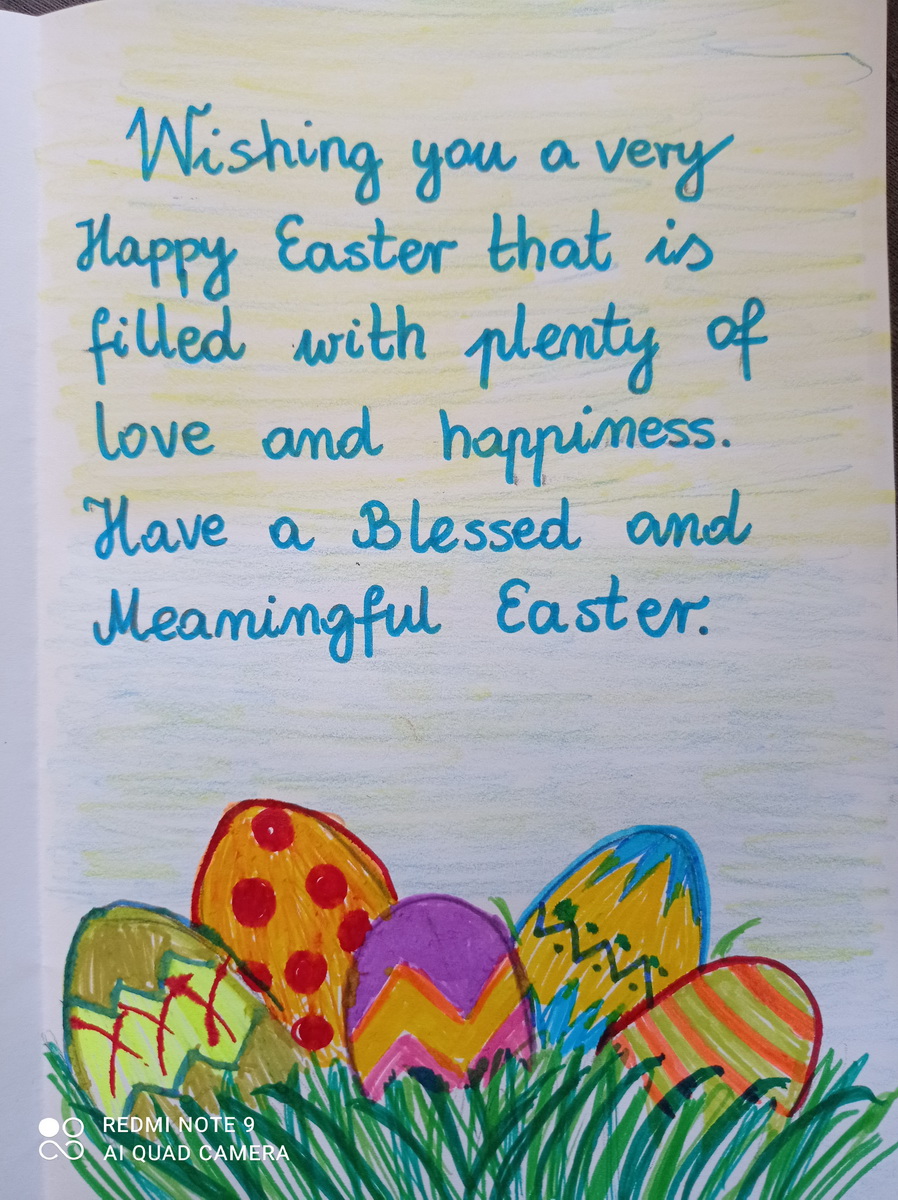 Wishing you a very
Happy Easter that is
filled with plenty of
love and happiness.
Have a Blessed and
Meaningful Easter.
REDMI NOTE 9
AI QUAD CAMERA